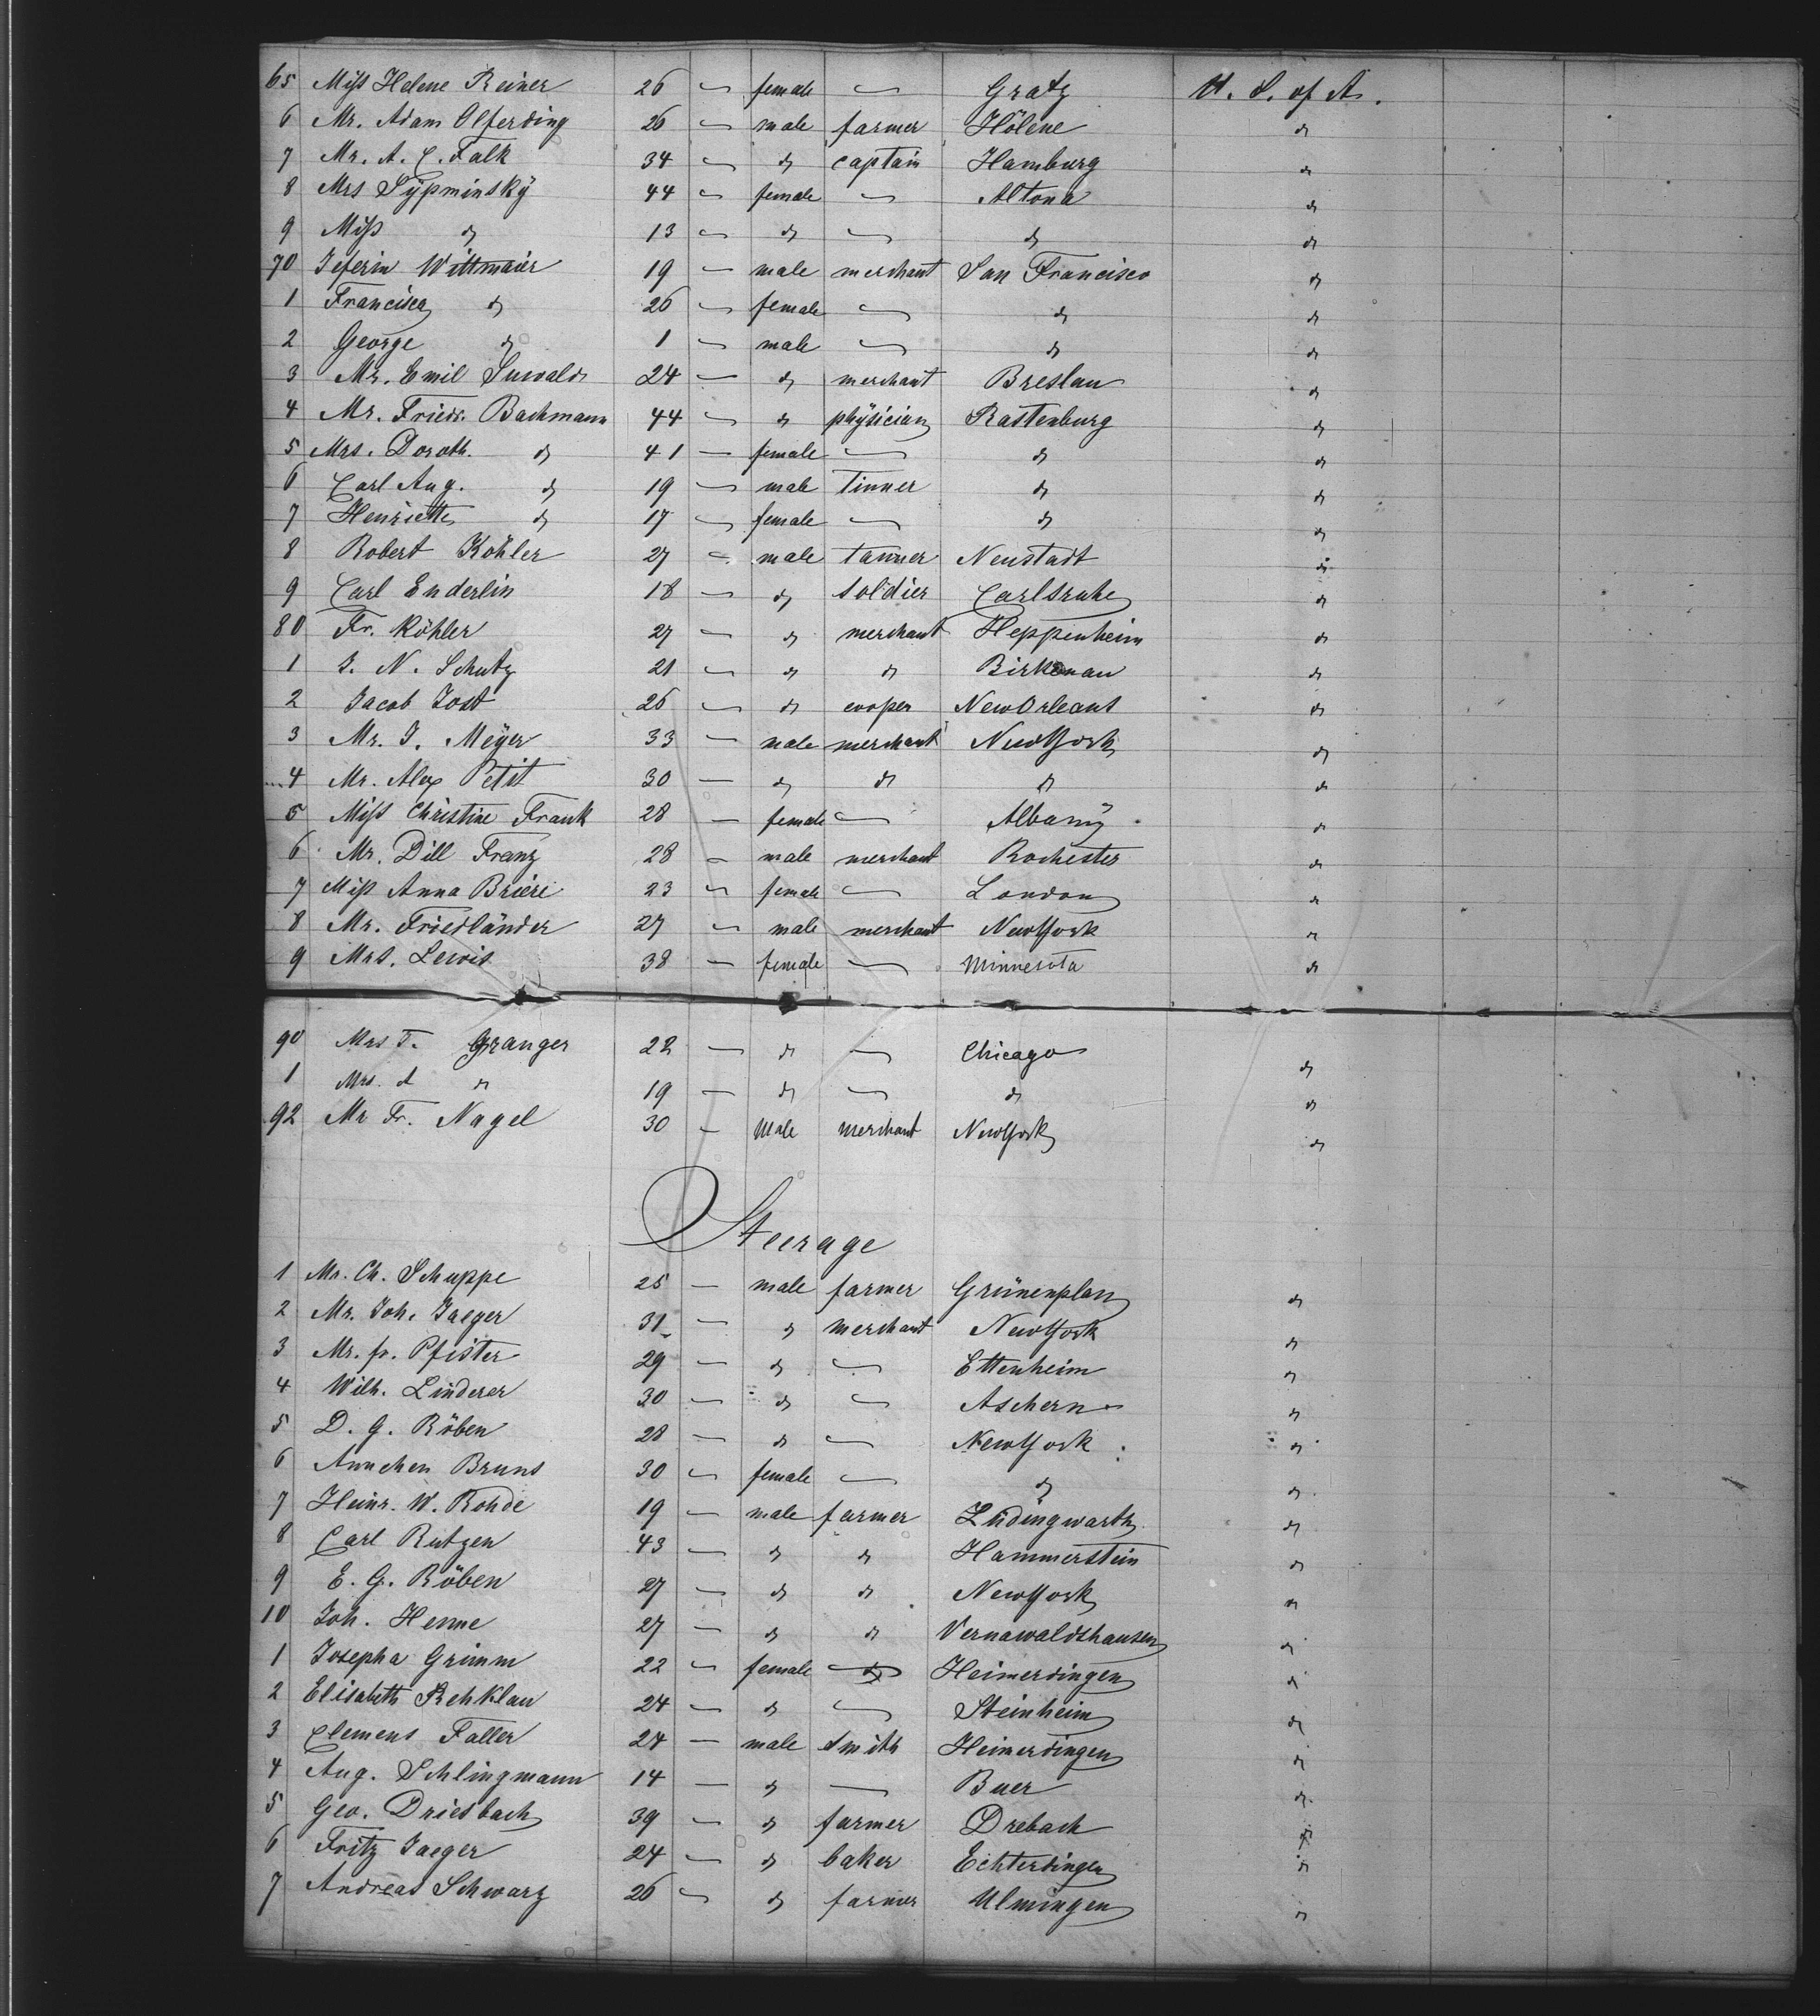 65 Miss Helene Reiner 26 — female — Gratz U. S. of A.
6 Mr. Adam Olferding 26 — male farmer Hölene do
7 Mr. A. C. Falk 34 — do captain Hamburg do
8 Mrs Sÿpminskÿ 44 — female — Altona do
9 Miss do 13 — do — do do
70 Zeferin Wittmaier 19 — male merchant San Francisco do
1 Francisca do 26 — female — do do
2 George do 1 — male — do do
3 Mr. Emil Suwald 24 — do merchant Breslau do
4 Mr. Friedr. Bachmann 44 — do phÿsician Rastenburg do
5 Mrs. Doroth. do 41 — female — do do
6 Carl Aug. do 19 — male tinner do do
7 Henriette do 17 — female — do do
8 Robert Köhler 27 — male tanner Neustadt do
9 Carl Enderlin 18 — do soldier Carlsruhe do
80 Fr. Köhler 27 — do merchant Heppenheim do
1 J. N. Schutz 21 — do do Birkenau do
2 Jacob Jost 26 — do cooper New Orleans do
3 Mr. J. Meÿer 33 — male merchant New York do
4 Mr. Alex Petit 30 — do do do do
5 Miss Christine Frank 28 — female — Albanÿ do
6 Mr. Dill Franz 28 — male merchant Rochester do
7 Miss Anna Briere 23 — female — London do
8 Mr. Friedländer 27 — male merchant New York do
9 Mrs. Lewis 38 — female — Minnesota do
90 Mrs F. Granger 22 — do — Chicago do
1 Mrs. A do 19 — do — do do
92 Mr Fr. Nagel 30 — Male merchant New York do
Steerage
1 Mr. Ch. Schuppe 25 — male farmer Grünenplan do
2 Mr. Joh. Jaeger 31 — do merchant New York do
3 Mr. fr. Pfister 29 — do — Ettenheim do
4 Wilh. Linderer 30 — do — Aschern do
5 D. G. Röben 28 — do — New York do
6 Annchen Bruns 30 — female — do do
7 Heinr. W. Rohde 19 — male farmer Lüdingwarth do
8 Carl Rutzen 43 — do do Hammerstein do
9 E. G. Röben 27 — do do New York do
10 Joh. Henne 27 — do do Vernawaldshausen do
1 Josepha Grimm 22 — female — Heimerdingen do
2 Elisabeth Rehklau 24 — do — Steinheim do
3 Clemens Faller 24 — male smith Heimerdingen do
4 Aug. Schlingmann 14 — do — Buer do
5 Geo. Driesbach 39 — do farmer Drebach do
6 Fritz Jaeger 24 — do baker Echterdingen do
7 Andreas Schwarz 26 — do farmer Ulmingen do